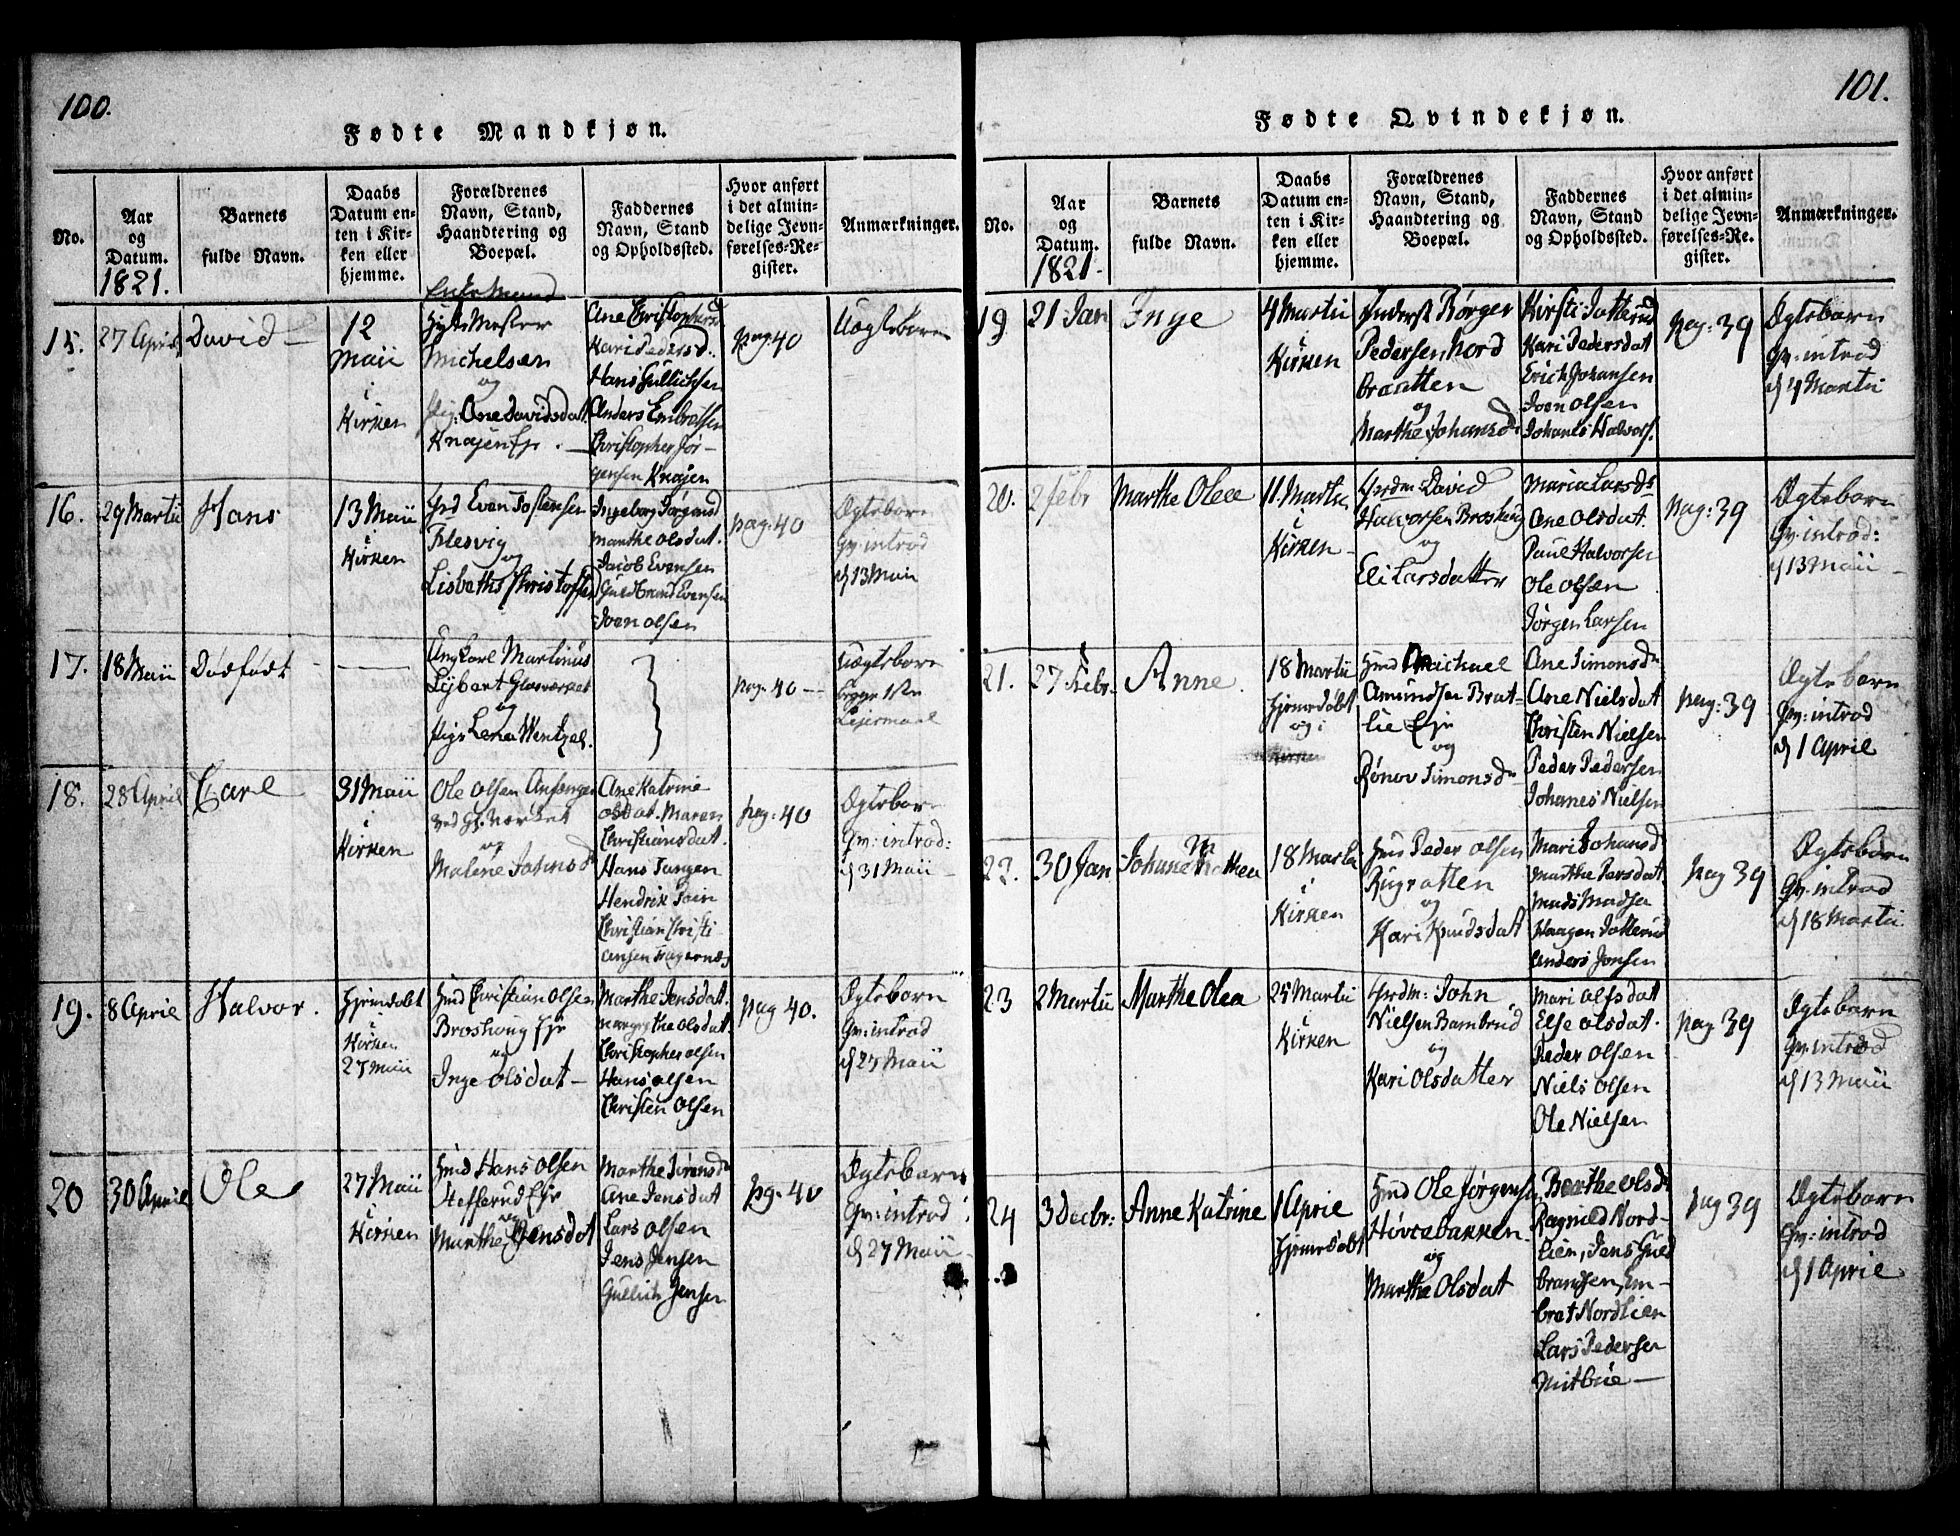 100.
Fødte Mandkjøn.
No.
Aar
og
Datum.
1821.
Barnets
fulde Navn.
Daabs
Datum en-
ten i Kir-
ken eller
hjemme.
Forældrenes
Navn, Stand,
Haandtering og
Boepæl.
Faddernes
Navn, Stand
og Opholdssted.
Hvor anført
i det almin-
delige Jevn-
førelses-Re-
gister.
Anmærkninger.
15.
27 April
David
12
Maii
i
Kirken
Enke Mand
Michelsen
og
Pig: Ane Davidsdat
Knajen Ejr.
Ane Christophersd
Kari Pedersd.
Hans Gullichsen
Anders Embretsen
Christopher Jør-
gensen Knajen
pag: 40
Uægtebarn
16.
29 Martii
Hans
13 Maii
i
Kirken
Even Tostensen
Flesvig
og
Lisbeth Christoffersd
Ingeborg Jørgensd
Marthe Olsdat.
Jacob Evensen
Guldbrand Evensen
Joen Olsen
pag: 40
Ægtebarn
Qv: introd
d 13 Maii
17.
18 Maii
Dødfødt
Ung Karl Martinus
Lybart Glasværket
og
Pige Lena Wentzel.
pag: 40
Uægtebarn
Begge 1ste
Lejermaal
18.
28 April
Carl
31 Maii
i
Kirken
Ole Olsen
ved Gl. Værket
og
Malene
Ane Katrine
Olsdat. Maren
Christiansdat.
Hans Tangen
Hendrik
Christian Christi
ansen Fagernæs
pag: 40
Ægtebarn
Qv: introd:
d 31 Maii
19.
8 April
Halvor.
Hjemdøbt
i
Kirken
27 Maii
Hmd Christian Olsen
Broshoug Ejr
og
Inge Olsdat
Marthe Jensdat.
Margrethe Olsdat
Christopher Olsen
Hans Olsen
Christen Olsen
pag 40.
Ægtebarn
Qv: introd
d 27 Maii
20
30 April
Ole
27 Maii
i
Kirken
Hmd Hans Olsen
Ejr
og
Marthe Jensdat
Marthe Sørensd
Ane Jensdat
Lars Olsen
Jens Jensen
Gullich Jensen
pg. 40
Ægtebarn
Qv: introd
d 27 Maii
101.
Fødte Qvindekjøn.
No.
Aar
og
Datum.
1821
Barnets
fulde Navn.
Daabs
Datum en-
ten i Kir-
ken eller
hjemme.
Forældrenes
Navn, Stand,
Haandtering og
Boepæl.
Faddernes
Navn, Stand
og Opholdssted.
Hvor anført
i det almin-
delige Jevn-
førelses-Re-
gister.
Anmærkninger.
19
21 Jan
Inge
4 Martii
i
Kirken
Børger
Pedersen Nord
Braatten
og
Marthe Johansd
Kirsti Jotterud
Kari Pedersdat
Erich Johansen
Joen Olsen
Johanes Halvors.
pag: 39
Ægtebarn
Qv: introd
d 4 Martii
20.
2 Febr
Marthe Olea
11. Martii
i
Kirken
David
Halvorsen Broshoug
og
Eli Larsdatter
Maria Larsd
Ane Olsdat.
Paul Halvorsen
Ole Olsen
Jørgen Larsen
pag: 39
Ægtebarn
Qv: introd:
d 13 Maii
21.
27 Febr.
Anne.
18 Martii
Hjemdøbt
og i
Kirken
Hmd Michael
Amundsen Brat-
lie Ejr
og
Rønov Simonsd
Ane Simonsd
Ane Nielsdat
Christen Nielsen
Peder Pedersen
Johanes Nielsen
pag: 39
Ægtebarn
Qv: introd
d 1 April
22.
30 Jan
18 Martii
i
Kirken
Peder Olsen
og
Kari Knudsdat
Mari Johansd
Marthe Larsdat
Mads Madsen
Haagen Jotterud
Anders Jonsen
pag 39
Ægtebarn
Qv: introd
d 18 Martii
23
2 Martii
Marthe Olea
25 Martii
i
Kirken
John
Nielsen Bambrud
og
Kari Olsdatter
Mari Olsdat
Else Olsdat.
Peder Olsen
Niels Olsen
Ole Nielsen
pag 39
Ægtebarn
Qv: introd
d 13 Maii
24
3 Decbr:
Anne Katrine
1 April
Hjemdøbt
Hmd Ole Jørgensen
Hovlebakken
og
Marthe Olsdat
Berthe Olsd
Ragnild Nord-
lien, Jens Guld
brandsen, Em-
bret Nordlien
Lars Pedersen
Mitbue
pag 39
Ægtebarn
Qv: introd
d 1 April